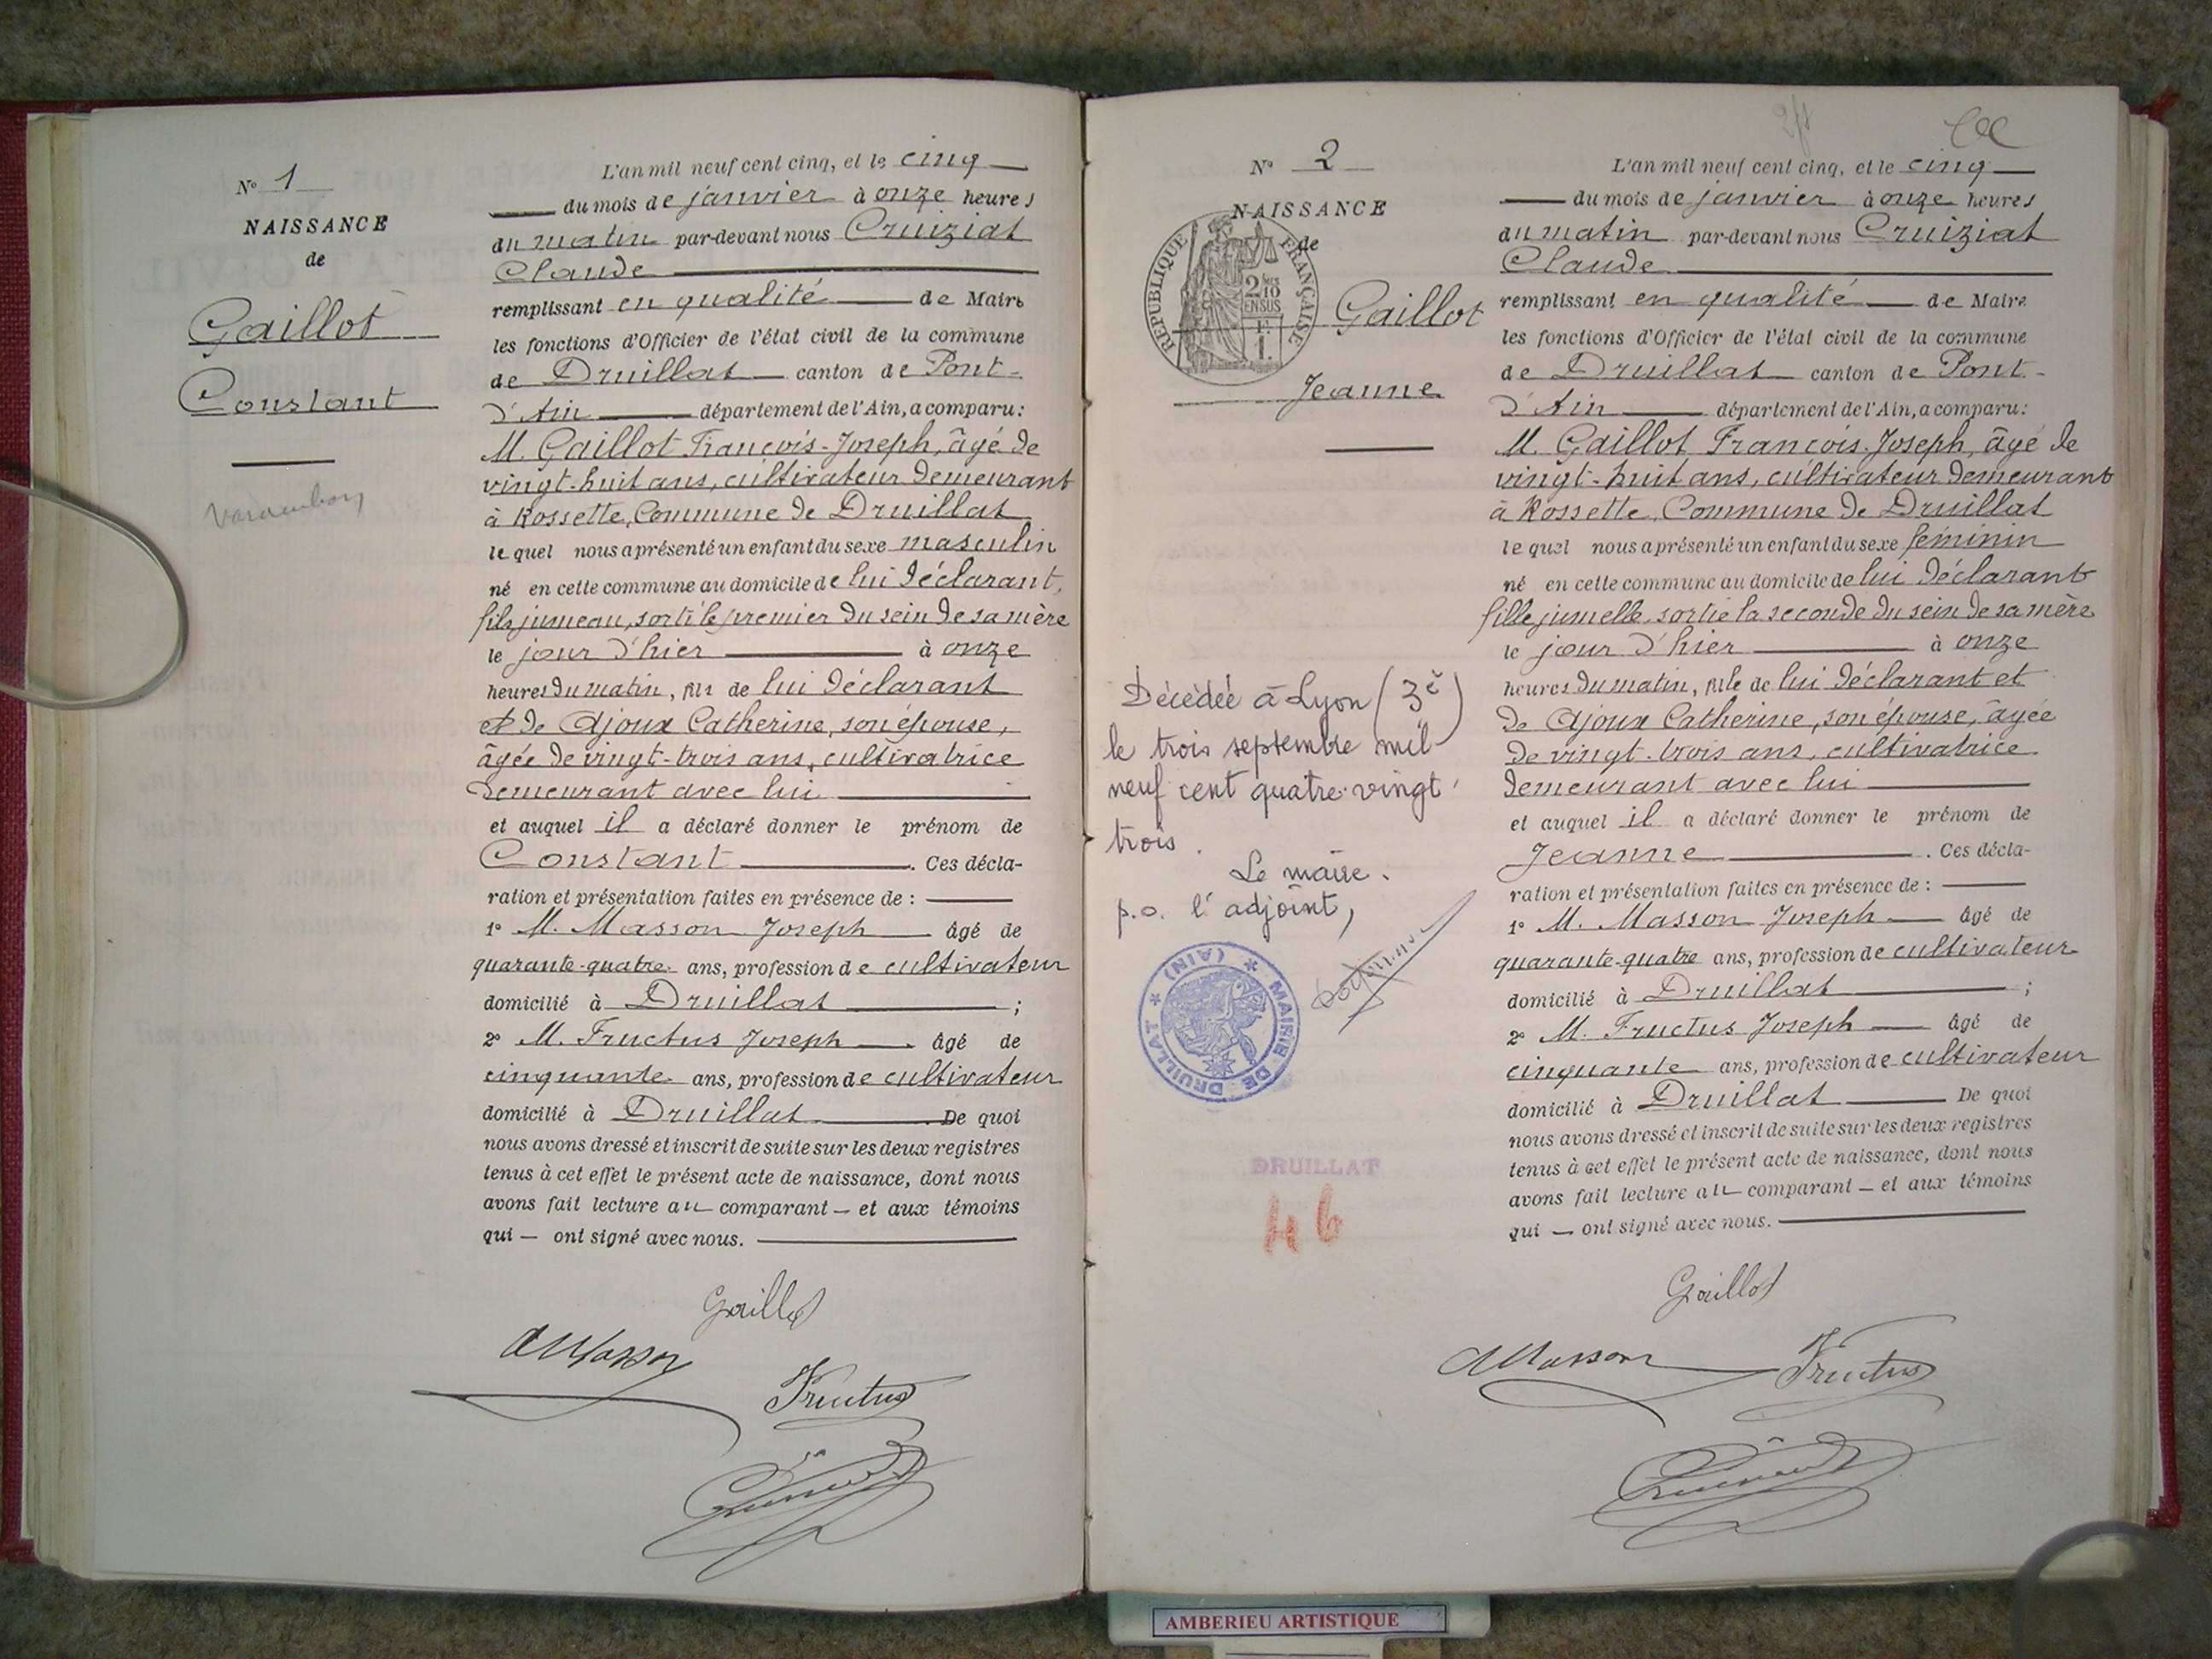 N° 1
NAISSANCE
de
Gaillot
Constant
Varambon
L'an mil neuf cent cinq, et le cinq
du mois de janvier à onze heures
du matin par-devant nous Cruiziat
Claude
remplissant en qualité de Maire
les fonctions d'Officier de l'état civil de la commune
de Druillat canton de Pont-
d'Ain département de l'Ain, a comparu:
M. Gaillot François-Joseph, âgé de
vingt-huit ans, cultivateur demeurant
à Rossette, Commune de Druillat
le quel nous a présenté un enfant du sexe masculin
né en cette commune au domicile de lui déclarant,
fils jumeau, sorti le premier du sein de sa mère
le jour d'hier à onze
heures du matin, fils de lui déclarant
et de Ajoux Catherine, son épouse,
âgée de vingt-trois ans, cultivatrice
demeurant avec lui
et auquel il a déclaré donner le prénom de
Constant. Ces décla-
ration et présentation faites en présence de :
1° M. Masson Joseph âgé de
quarante-quatre ans, profession de cultivateur
domicilié à Druillat ;
2° M. Fructus Joseph âgé de
cinquante ans, profession de cultivateur
domicilié à Druillat. De quoi
nous avons dressé et inscrit de suite sur les deux registres
tenus à cet effet le présent acte de naissance, dont nous
avons fait lecture au comparant — et aux témoins
qui — ont signé avec nous.
Gaillot
Masson
Fructus
N° 2
NAISSANCE
de
REPUBLIQUE FRANÇAISE
2/10 EN SUS
1 F.
Gaillot
Jeanne
Décédée à Lyon (3è)
le trois septembre mil
neuf cent quatre-vingt
trois.
Le maire.
p.o. l'adjoint,
* MAIRIE DE DRUILLAT * (AIN)
DRUILLAT
46
L'an mil neuf cent cinq, et le cinq
du mois de janvier à onze heures
du matin par-devant nous Cruiziat
Claude
remplissant en qualité de Maire
les fonctions d'Officier de l'état civil de la commune
de Druillat canton de Pont-
d'Ain département de l'Ain, a comparu:
M. Gaillot François-Joseph, âgé de
vingt-huit ans, cultivateur demeurant
à Rossette, Commune de Druillat
le quel nous a présenté un enfant du sexe féminin
né en cette commune au domicile de lui déclarant
fille jumelle, sortie la seconde du sein de sa mère
le jour d'hier à onze
heures du matin, fille de lui déclarant et
de Ajoux Catherine, son épouse, âgée
de vingt-trois ans, cultivatrice
demeurant avec lui
et auquel il a déclaré donner le prénom de
Jeanne. Ces décla-
ration et présentation faites en présence de :
1° M. Masson Joseph âgé de
quarante-quatre ans, profession de cultivateur
domicilié à Druillat ;
2° M. Fructus Joseph âgé de
cinquante ans, profession de cultivateur
domicilié à Druillat De quoi
nous avons dressé et inscrit de suite sur les deux registres
tenus à cet effet le présent acte de naissance, dont nous
avons fait lecture au comparant — et aux témoins
qui — ont signé avec nous.
Gaillot
Masson
Fructus
AMBERIEU ARTISTIQUE